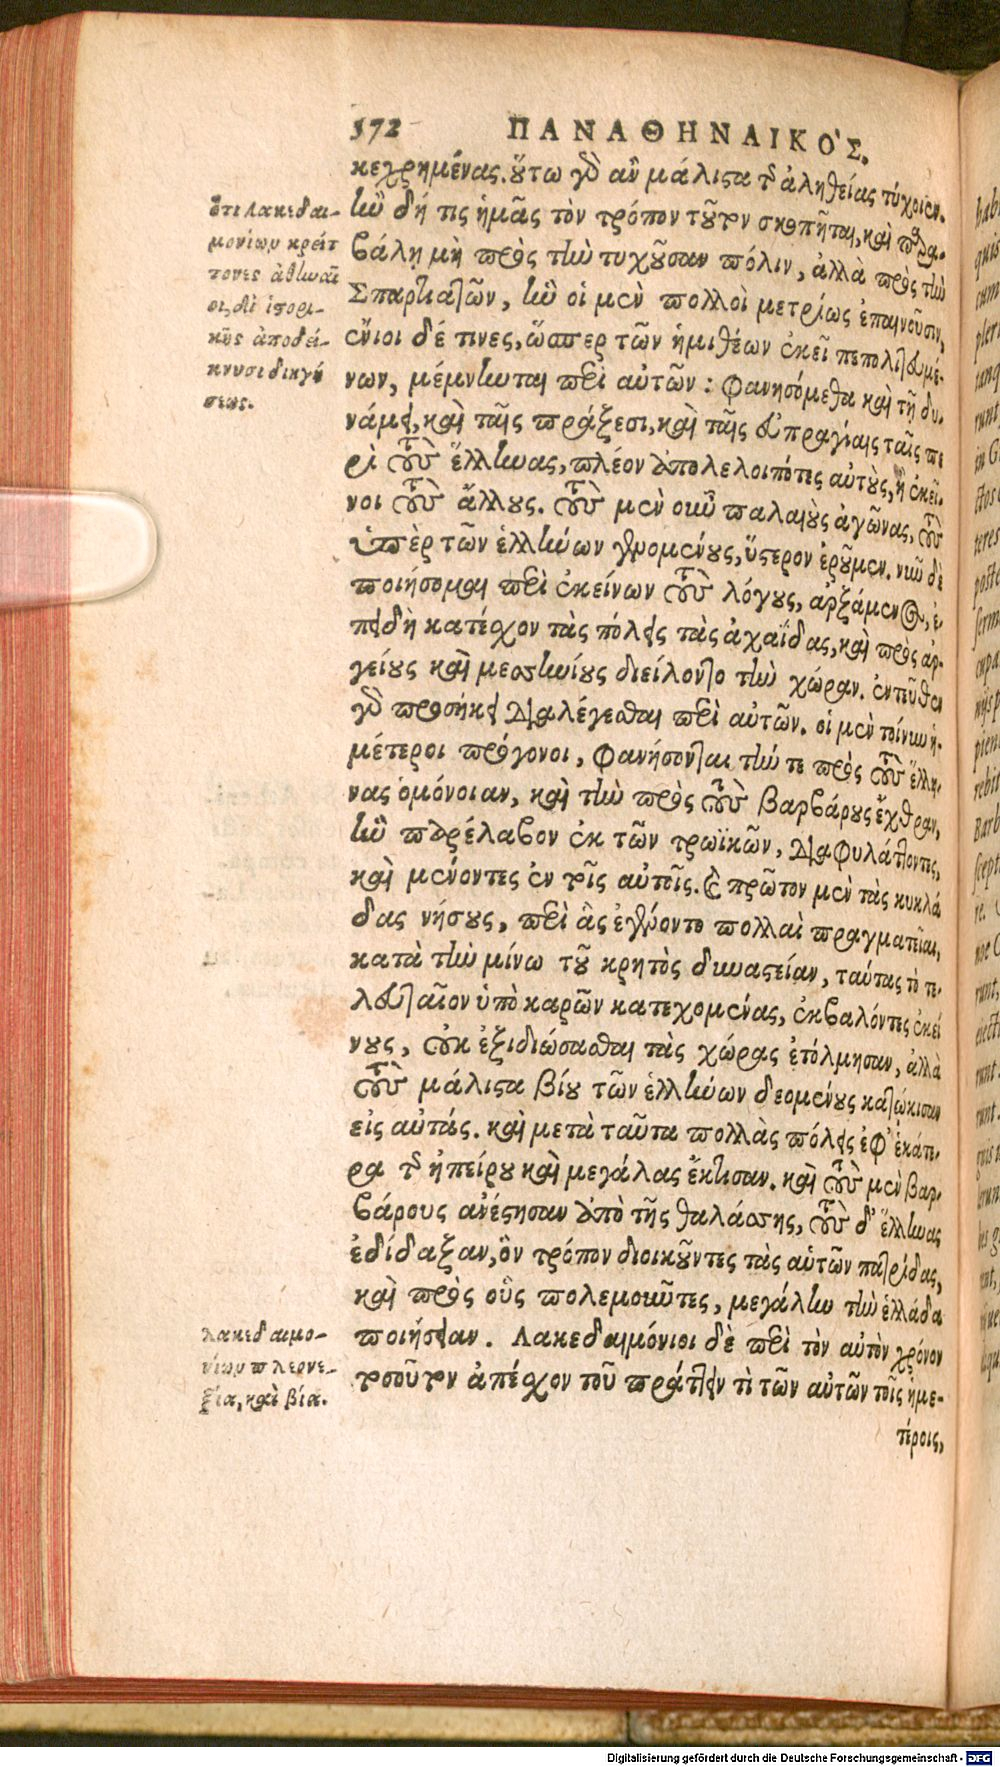 372 ΠΑΝΑΘΗΝΑΙΚΟ'Σ.
κεχρημένας. οὕτω γὰρ ἂν μάλιστα τῆς ἀληθείας τύχοιεν.
ὅτι λακεδαι-
μονίων κρείτ
τονες ἀθηναῖ
οι, δι' ἱστορι-
κῆς ἀποδεί-
κνυσι διηγή
σεως.
ἢν δή τις ἡμᾶς τὸν τρόπον τοῦτον σκοπῆται, καὶ παρα-
βάλῃ μὴ πρὸς τὴν τυχοῦσαν πόλιν, ἀλλὰ πρὸς τὴν
Σπαρτιατῶν, ἣν οἱ μὲν πολλοὶ μετρίως ἐπαινοῦσιν,
ἔνιοι δέ τινες, ὥσπερ τῶν ἡμιθέων ἐκεῖ πεπολιτευμέ-
νων, μέμνηνται περὶ αὐτῶν: φανησόμεθα καὶ τῇ δυ-
νάμει, καὶ ταῖς πράξεσι, καὶ ταῖς εὐπραγίαις ταῖς πε
ρὶ τοὺς ἕλληνας, πλέον ἀπολελοιπότες αὐτοὺς, ἢ ἐκεῖ-
νοι τοὺς ἄλλους. τοὺς μὲν οὖν παλαιοὺς ἀγῶνας, τοὺς
ὑπὲρ τῶν ἑλλήνων γενομένους, ὕστερον ἐροῦμεν. νῦν δὲ
ποιήσομαι περὶ ἐκείνων τοὺς λόγους, ἀρξάμενος, ἐ-
πειδὴ κατέσχον τὰς πόλεις τὰς ἀχαΐδας, καὶ πρὸς ἀρ-
γείους καὶ μεσσηνίους διείλοντο τὴν χώραν. ἐντεῦθεν
γὰρ προσήκει διαλέγεσθαι περὶ αὐτῶν. οἱ μὲν τοίνυν ἡ-
μέτεροι πρόγονοι, φανήσονται τήν τε πρὸς τοὺς ἕλλη-
νας ὁμόνοιαν, καὶ τὴν πρὸς τοὺς βαρβάρους ἔχθραν,
ἣν παρέλαβον ἐκ τῶν τρωϊκῶν, διαφυλάττοντες,
καὶ μένοντες ἐν τοῖς αὐτοῖς. καὶ πρῶτον μὲν τὰς κυκλά
δας νήσους, περὶ ἃς ἐγένοντο πολλαὶ πραγματεῖαι,
κατὰ τὴν μίνω τοῦ κρητὸς δυναστείαν, ταύτας τὸ τε-
λευταῖον ὑπὸ καρῶν κατεχομένας, ἐκβαλόντες ἐκεί
νους, οὐκ ἐξιδιώσασθαι τὰς χώρας ἐτόλμησαν, ἀλλὰ
τοὺς μάλιστα βίου τῶν ἑλλήνων δεομένους κατῴκισαν
εἰς αὐτάς. καὶ μετὰ ταῦτα πολλὰς πόλεις ἐφ' ἑκάτε-
ρα τῆς ἠπείρου καὶ μεγάλας ἔκτισαν. καὶ τοὺς μὲν βαρ-
βάρους ἀνέστησαν ἀπὸ τῆς θαλάσσης, τοὺς δ' ἕλληνας
ἐδίδαξαν, ὃν τρόπον διοικοῦντες τὰς αὑτῶν πατρίδας,
καὶ πρὸς οὓς πολεμοῦντες, μεγάλην τὴν ἑλλάδα
λακεδαιμο-
νίων πλεονε-
ξία, καὶ βία.
ποιήσειαν. Λακεδαιμόνιοι δὲ περὶ τὸν αὐτὸν χρόνον
τοσοῦτον ἀπέσχον τοῦ πράττειν τὶ τῶν αὐτῶν τοῖς ἡμε-
τέροις,
Digitalisierung gefördert durch die Deutsche Forschungsgemeinschaft - DFG